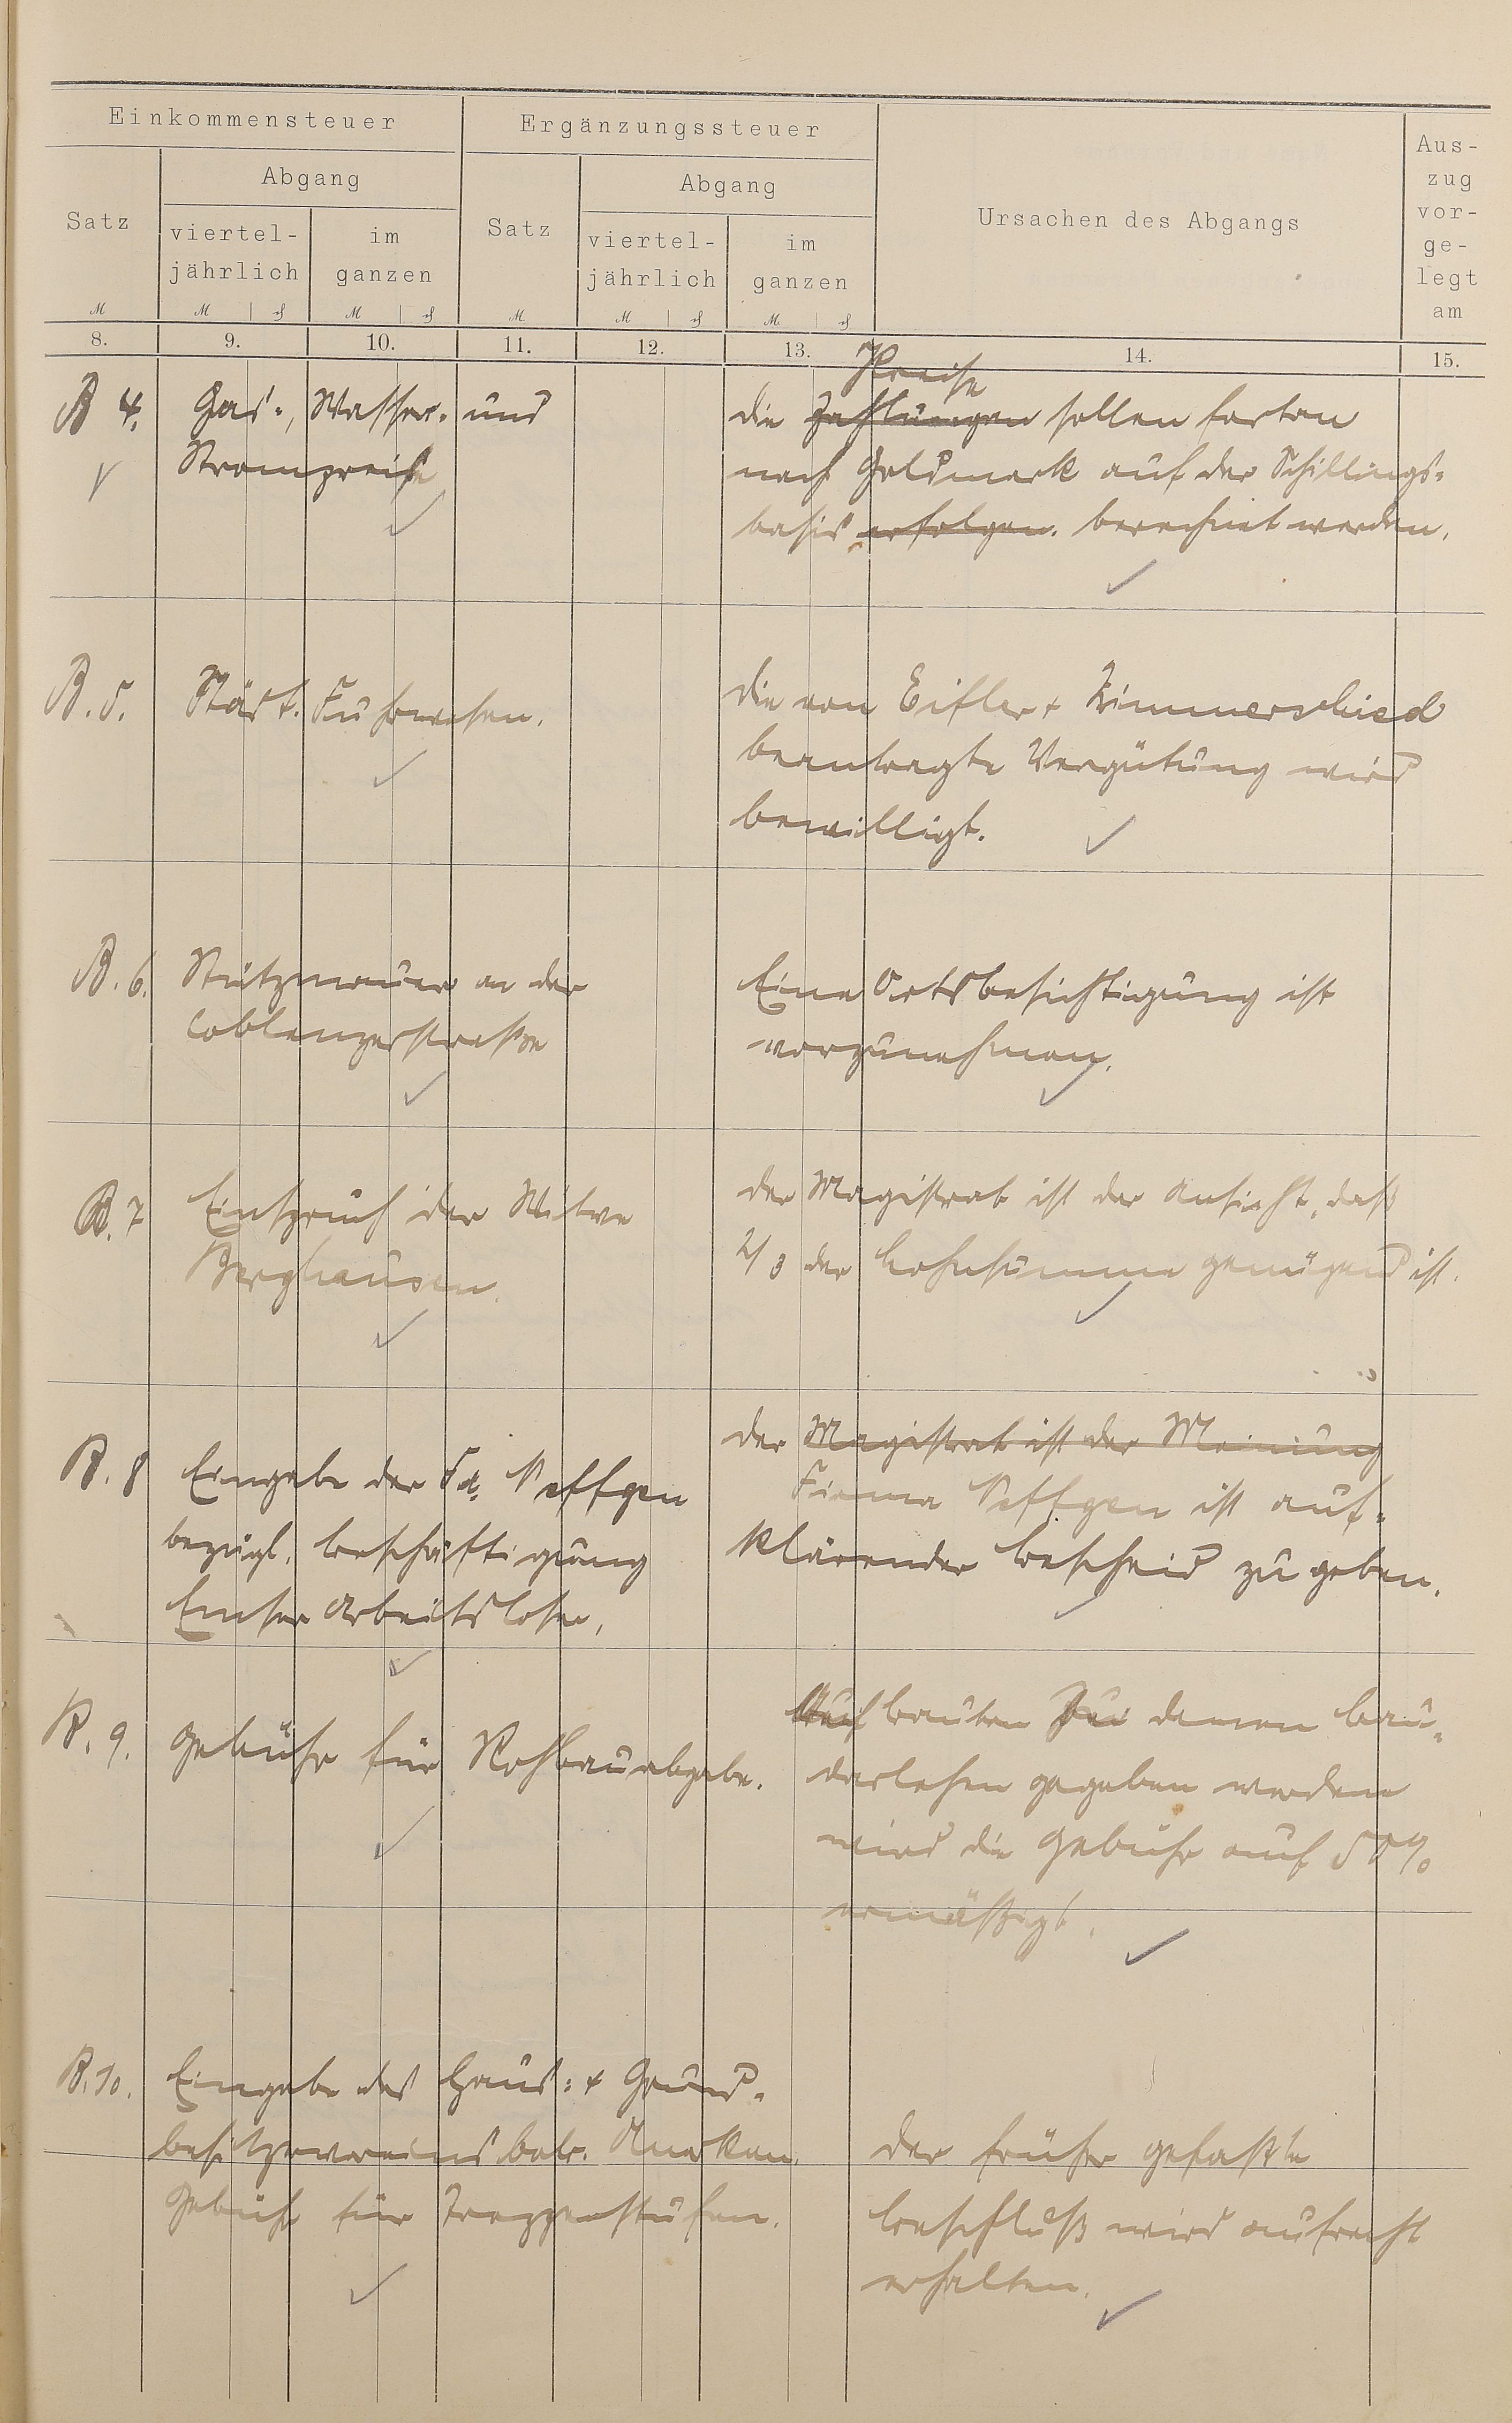 Einkommensteuer
Ergänzungssteuer
Ursachen des Abgangs
Aus-
zug
vor-
ge-
legt
am
Satz
Abgang
viertel-
jährlich
im
ganzen
Satz
Abgang
viertel-
jährlich
im
ganzen
8. 9. 10. 11. 12. 13. 14. 15.
B 4. Gas-, Wasser- und
Strompreise
Preise
die Zahlungen sollen fortan
nach Goldmark auf der Schillings-
basis erfolgen. berechnet werden.
B. 5. Städt. Fuhrwesen.
die von Eifler + Zimmerschied
beantragte Vergütung wird
bewilligt.
B. 6. Stützmauer an der
Coblenzerstraße
Eine Ortsbesichtigung ist
vorzunehmen.
B. 7 Einspruch der Witwe
Berghausen.
der Magistrat ist der Ansicht, daß
2/3 der Lohnsumme genügend ist.
B. 8 Eingabe der Fa. Seffgen
bezügl. Beschäftigung
Emser Arbeitsloser.
der Magistrat ist der Meinung
Firma Seffgen ist auf-
klärender Bescheid zu geben.
B. 9. Gebühr für Rohbauabgabe.
Auf Bauten denen Bau-
darlehen gegeben werden
wird die Gebühr auf 50%
ermäßigt.
B. 10. Eingabe des Haus- + Grund-
besitzervereins betr. Anerken.
Gebühr für Treppenstufen.
der früher gefaßte
Beschluß wird aufrecht
erhalten.